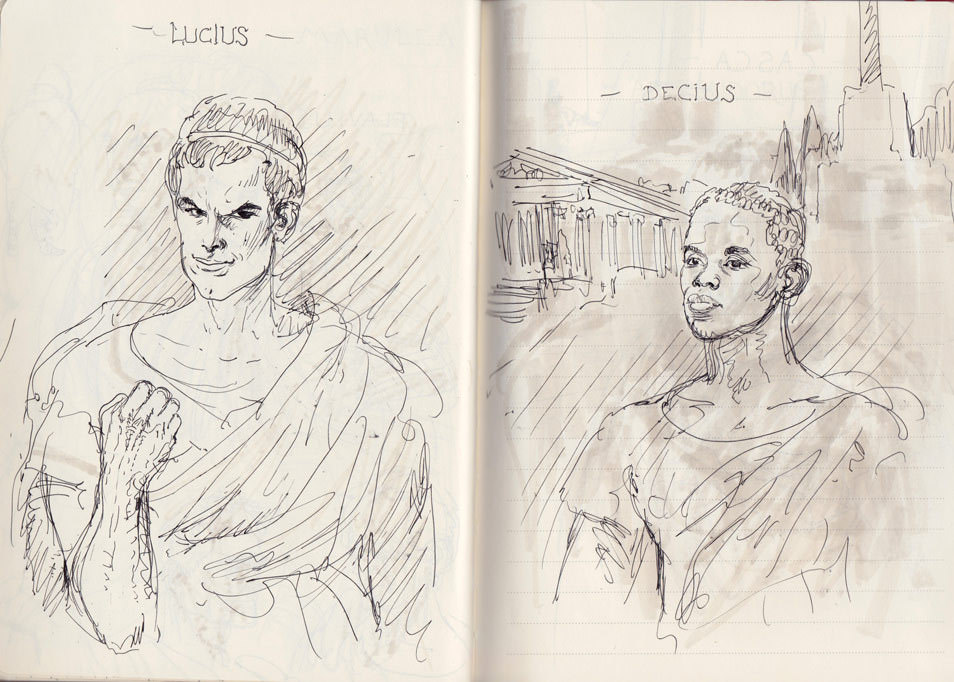 - LUCIUS -
- DECIUS -